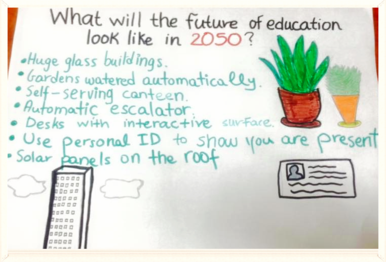 What will the future of education
look like in 2050?
•Huge glass buildings.
•Gardens watered automatically.
•Self-serving canteen.
•Automatic escalator.
•Desks with interactive surface.
•Use personal ID to show you are present
•Solar panels on the roof